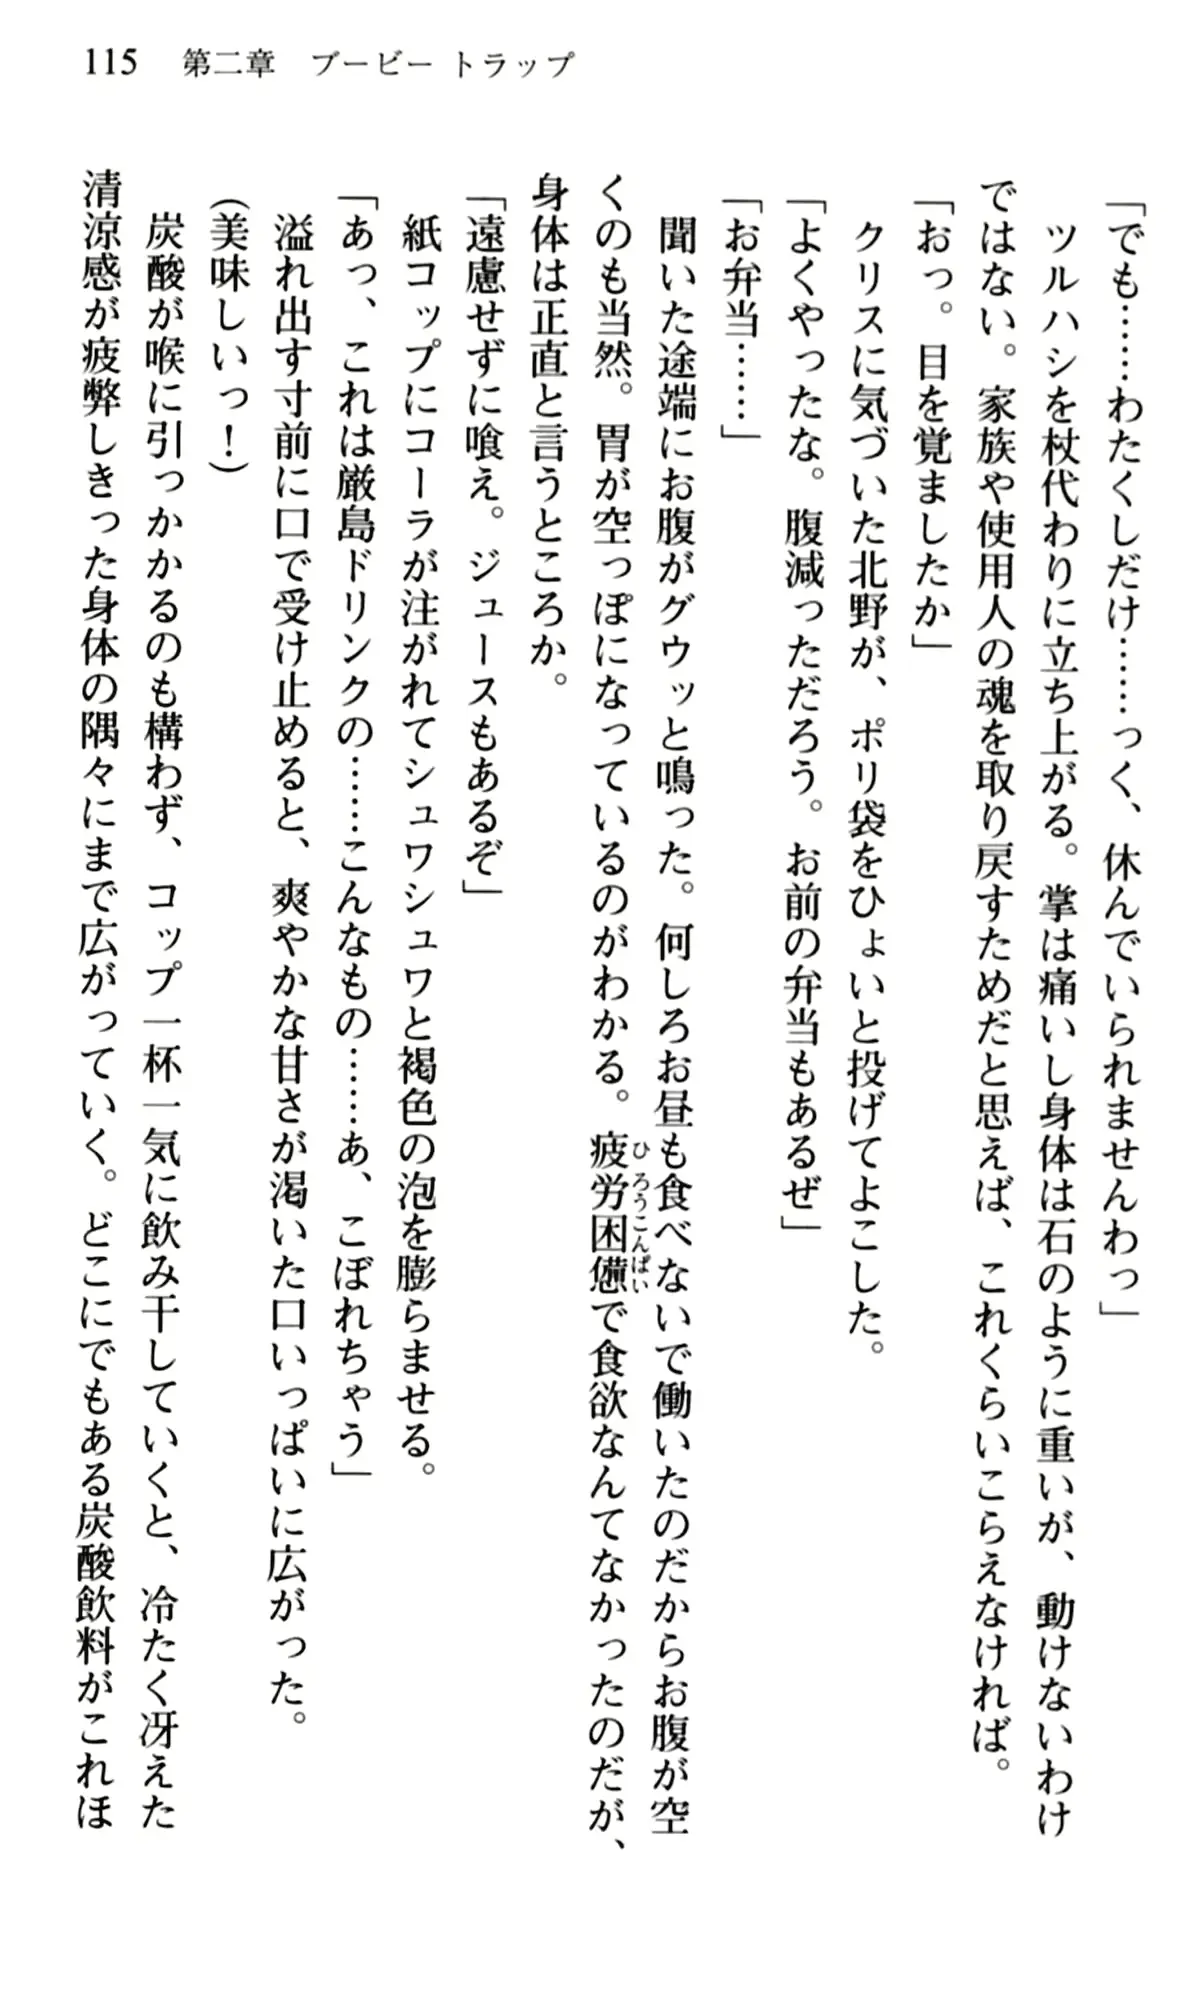 115　第二章　ブービートラップ
「でも……わたくしだけ……っく、休んでいられませんわっ」
ツルハシを杖代わりに立ち上がる。掌は痛いし身体は石のように重いが、動けないわけ
ではない。家族や使用人の魂を取り戻すためだと思えば、これくらいこらえなければ。
「おっ。目を覚ましたか」
クリスに気づいた北野が、ポリ袋をひょいと投げてよこした。
「よくやったな。腹減っただろう。お前の弁当もあるぜ」
「お弁当……」
聞いた途端にお腹がグウッと鳴った。何しろお昼も食べないで働いたのだからお腹が空
くのも当然。胃が空っぽになっているのがわかる。疲労困憊で食欲なんてなかったのだが、
身体は正直と言うところか。
「遠慮せずに喰え。ジュースもあるぞ」
紙コップにコーラが注がれてシュワシュワと褐色の泡を膨らませる。
「あっ、これは厳島ドリンクの……こんなもの……あ、こぼれちゃう」
溢れ出す寸前に口で受け止めると、爽やかな甘さが渇いた口いっぱいに広がった。
(美味しいっ！)
炭酸が喉に引っかかるのも構わず、コップ一杯一気に飲み干していくと、冷たく冴えた
清涼感が疲弊しきった身体の隅々にまで広がっていく。どこにでもある炭酸飲料がこれほ